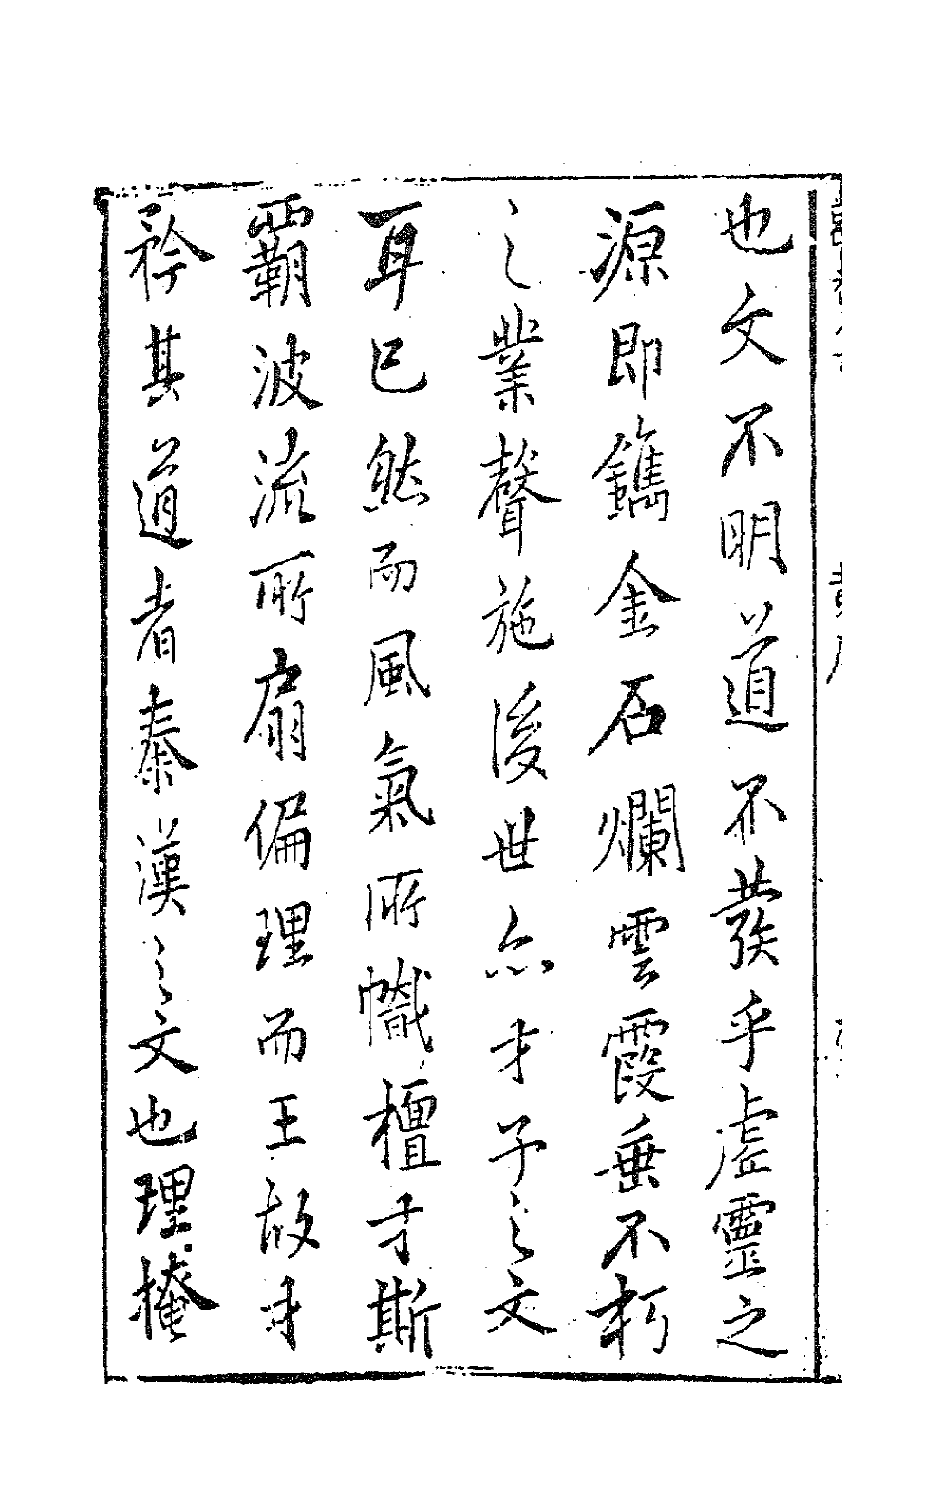 也文不明道不發乎虛靈之
源即鐫金石爛雲霞垂不朽
之業聲施後世亦才子之文
耳已然而風氣所幟檀才斯
霸波流所扇偏理而王故才
矜其道者秦漢之文也理掩